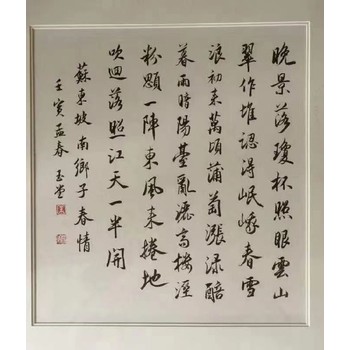 晚景落瓊杯照眼雲山
翠作堆認得岷峨春雪
浪初來萬頃蒲萄漲渌醅
暮雨暗陽臺亂灑高樓溼
粉顋一陣東風來捲地
吹迴落照江天一半開
蘇東坡南鄉子春情
壬寅孟春 玉堂